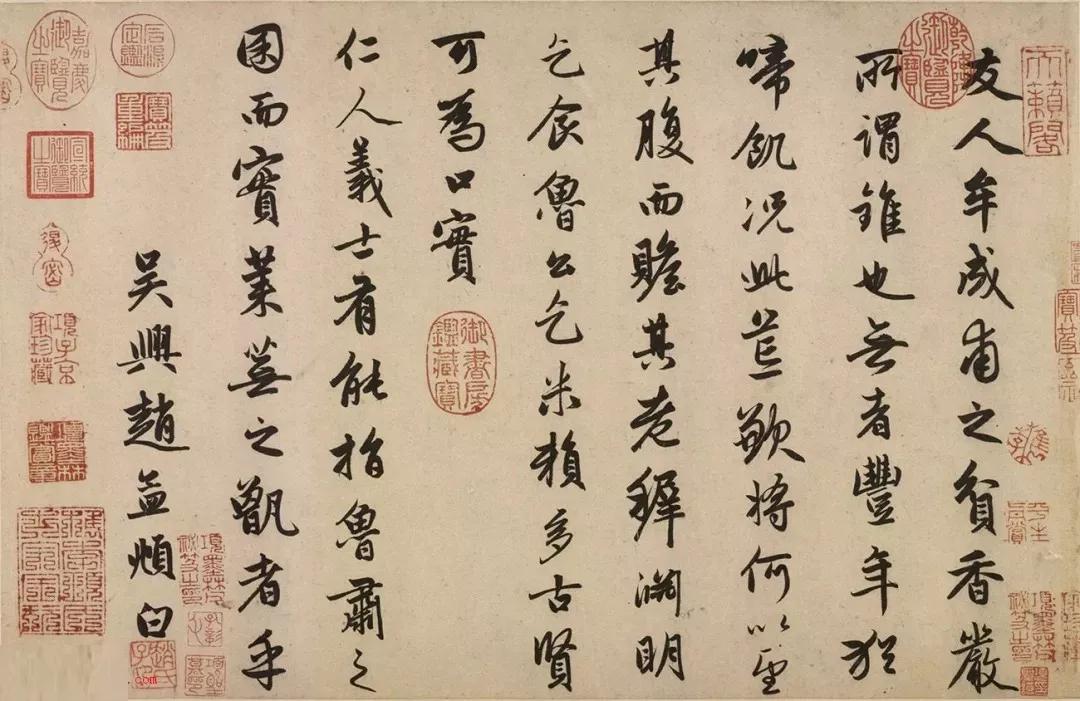 天籟閣
乾隆御覽之寶
友人牟成甫之貧香嚴
所謂錐也無者豐年猶
啼飢況此荒歉將何以堅
其腹而贍其老穉淵明
乞食魯公乞米賴多古賢
可為口實
御書房鑑藏寶
仁人義士有能指魯肅之
囷而實萊蕪之甑者乎
吳興趙孟頫白
趙氏子昂
石渠定鑑
寶笈重編
嘉慶御覽之寶
宣統御覽之寶
項子京家珍藏
項墨林鑑賞章